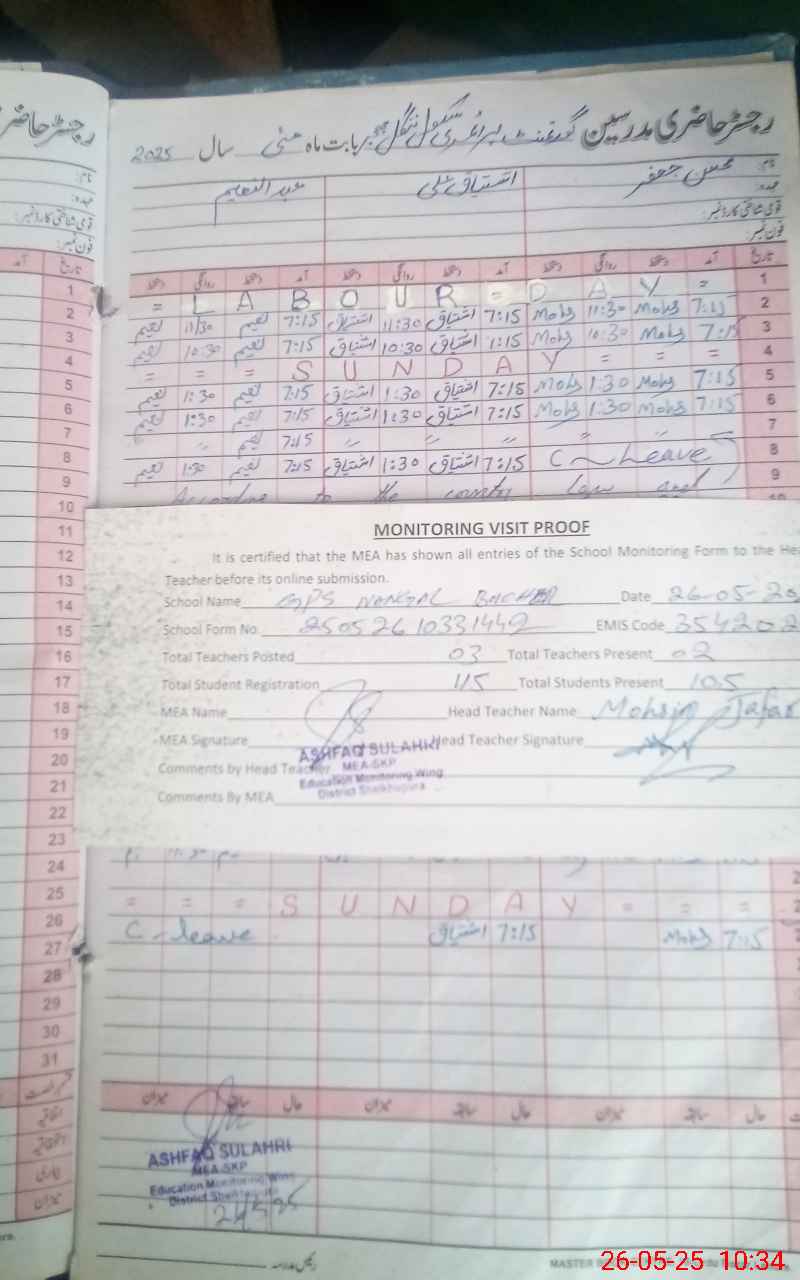 رجسٹر حاضری مدرسین گورنمنٹ پرائمری سکول ننگل بابت ماہ مئی سال 2025
رجسٹر حاض
نام: محسن جعفر اشتیاق علی عبدالنعیم
عہدہ:
قومی شناختی کارڈ نمبر:
فون نمبر:
تاریخ آمد دستخط روانگی دستخط آمد دستخط روانگی دستخط آمد دستخط روانگی دستخط
1 = LABOUR = DAY =
2 7:15 Mohs 11:30 Mohs 7:15 اشتیاق 11:30 اشتیاق 7:15 نعیم 11:30 نعیم
3 7:15 Mohs 10:30 Mohs 7:15 اشتیاق 10:30 اشتیاق 7:15 نعیم 10:30 نعیم
4 = = = SUNDAY = = =
5 7:15 Mohs 1:30 Mohs 7:15 اشتیاق 1:30 اشتیاق 7:15 نعیم 1:30 نعیم
6 7:15 Mohs 1:30 Mohs 7:15 اشتیاق 1:30 اشتیاق 7:15 نعیم 1:30 نعیم
7 〃 〃 〃 〃 〃 7:15 نعیم 〃
8 C-Leave 7:15 اشتیاق 1:30 اشتیاق 7:15 نعیم 1:30 نعیم
9 According to the country law and
10
11
12
13
14
15
16
17
18
19
20
21
22
23
24
25 = = = SUNDAY = = =
26 7:15 Mohs 7:15 اشتیاق C-leave
27
28
29
30
31
MONITORING VISIT PROOF
It is certified that the MEA has shown all entries of the School Monitoring Form to the Hea
Teacher before its online submission.
School Name GPS NANGAL BUCHER Date 26-05-20
School Form No. 25052610331449 EMIS Code 354202
Total Teachers Posted 03 Total Teachers Present 02
Total Student Registration 115 Total Students Present 105
MEA Name Head Teacher Name Mohsin Jafar
MEA Signature Head Teacher Signature
Comments by Head Teacher
Comments By MEA
ASHFAQ SULAHRI
MEA-SKP
Education Monitoring Wing
District Sheikhupura
حال سابقہ میزان حال سابقہ میزان حال سابقہ میزان
اتفاقیہ
بیماری
میزان
ASHFAQ SULAHRI
MEA-SKP
Education Monitoring Wing
District Sheikhupura
رئیس مدرسہ
26-05-25 10:34